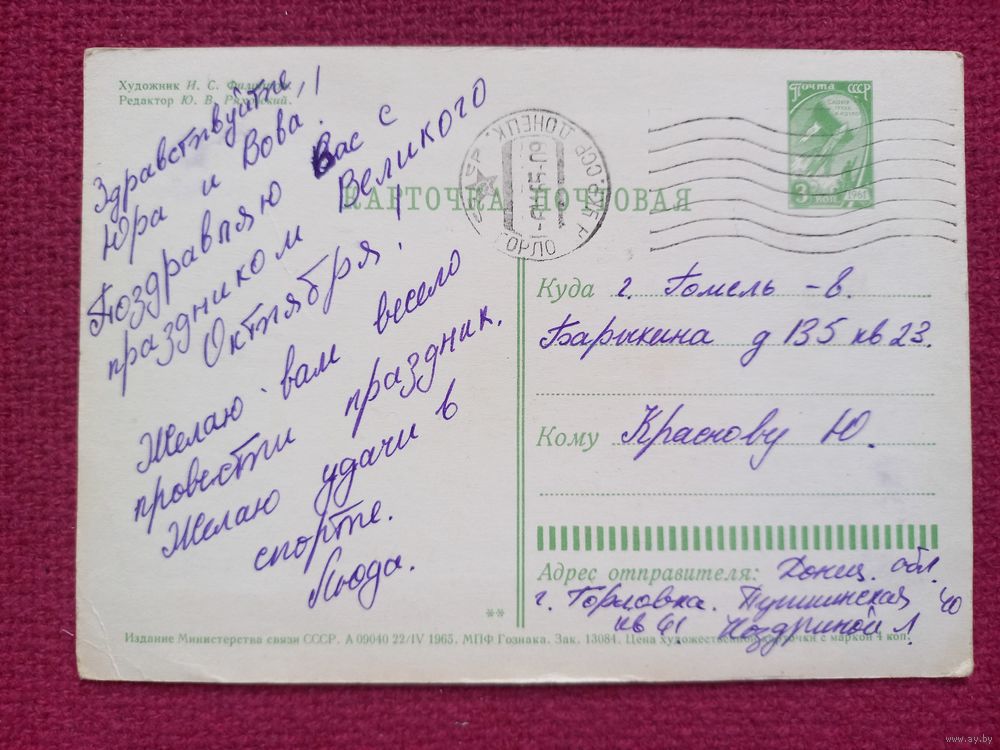 Художник И. С.
Редактор Ю. В.
Здравствуйте,
Юра и Вова!
Поздравляю Вас с
праздником Великого
Октября!
Желаю вам весело
провести праздник.
Желаю удачи в
спорте.
Люда.
**
Почта СССР
3 коп.
1961
ДОНЕЦК.
КАРТОЧКА ПОЧТОВАЯ
Куда г. Гомель - 8.
Барыкина д 135 кв 23.
Кому Краснову Ю.
Адрес отправителя: Донец. обл.
г. Горловка. Пушкинская 40
кв 61 Л.
Издание Министерства связи СССР. А 09040 22/IV 1965. МПФ Гознака. Зак. 13084. Цена художественной карточки с маркой 4 коп.
www.ay.by